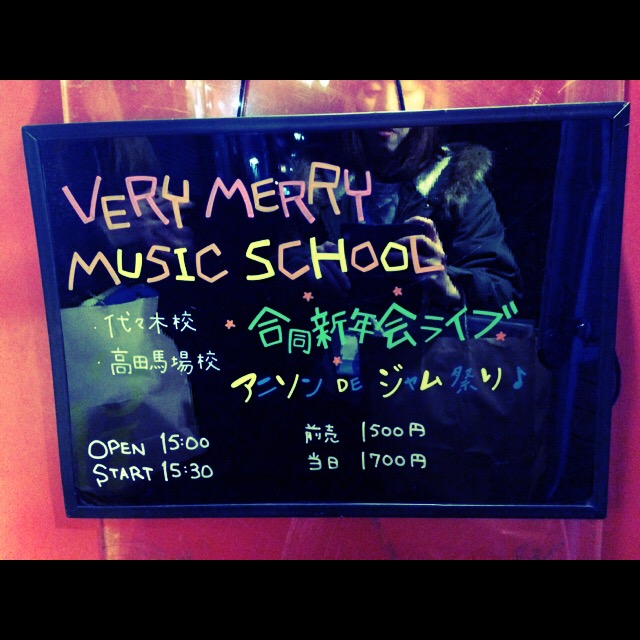 VERY MERRY
MUSIC SCHOOL
・代々木校
・高田馬場校
合同新年会ライブ
アニソン DE ジャム祭り♪
OPEN 15:00
START 15:30
前売 1500円
当日 1700円